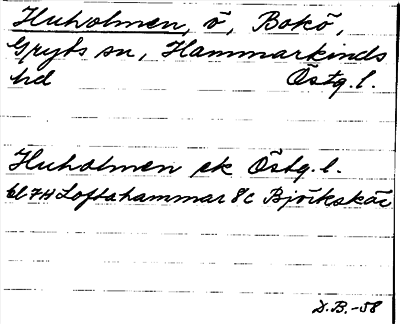 Huholmen, ö, Bokö,
Gryts sn, Hammarkinds
hd Östg. l.
Huholmen ek Östg. l.
bl 7H Loftahammar 8c Björkskär
D.B. -58